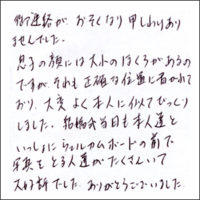 御連絡が おそくなり 申しわけあり
ませんでした。
息子の顔には大小のほくろがあるの
ですが、それも正確な位置に書かれて
おり、大変よく本人に似てびっくり
しました。結婚式当日も本人達と
いっしょにウェルカムボードの前で
写真をとる人達がたくさんいて
大好評でした。ありがとうございました。